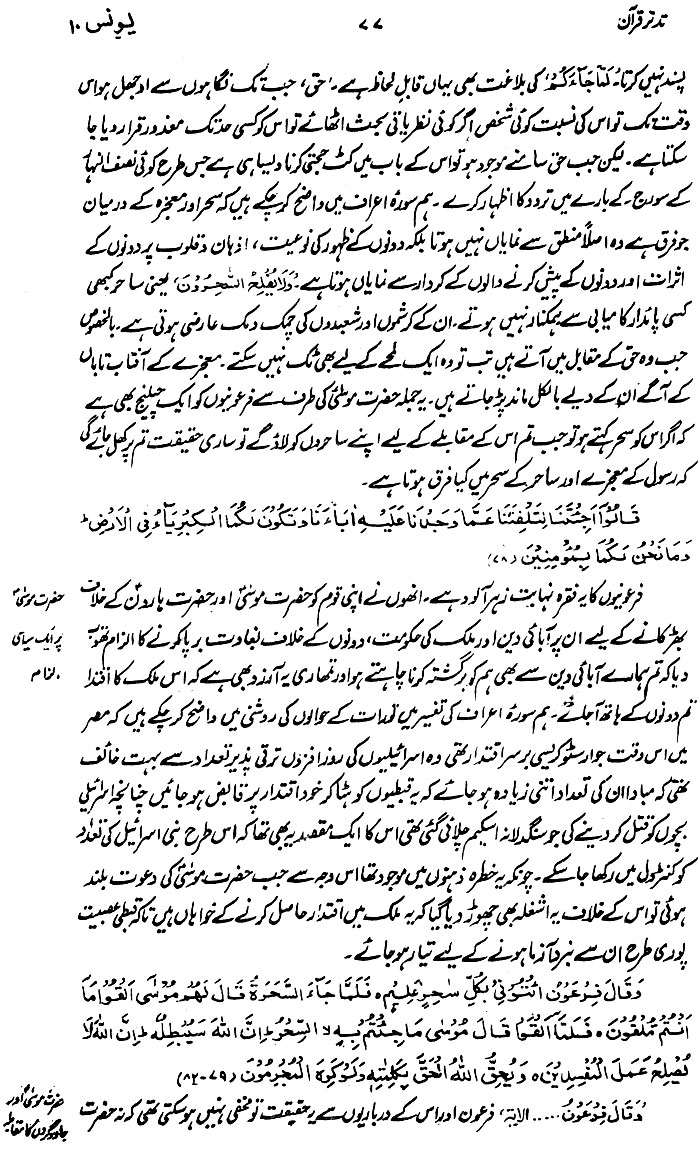 تدبر قرآن ۷۷ یونس ۱۰
پسند نہیں کرتا۔ لَمَّا جَآءَكُمْ، کی بلاغت بھی یہاں قابلِ لحاظ ہے۔ 'حق' جب تک نگاہوں سے اوجھل ہو اس
وقت تک تو اس کی نسبت کوئی شخص اگر کوئی نظریاتی بحث اٹھائے تو اس کو کسی حد تک معذور قرار دیا جا
سکتا ہے۔ لیکن جب حق سامنے موجود ہو تو اس کے باب میں کٹ حجتی کرنا ویسا ہی ہے جس طرح کوئی نصف النہار
کے سورج کے بارے میں تردد کا اظہار کرے۔ ہم سورۂ اعراف میں واضح کر چکے ہیں کہ سحر اور معجزہ کے درمیان
جو فرق ہے وہ اصلاً منطق سے نمایاں نہیں ہوتا بلکہ دونوں کے ظہور کی نوعیت، اذہان و قلوب پر دونوں کے
اثرات اور دونوں کے پیش کرنے والوں کے کردار سے نمایاں ہوتا ہے۔ وَلَا يُفْلِحُ السّٰحِرُوْنَ، یعنی ساحر کبھی
کسی پائدار کامیابی سے ہمکنار نہیں ہوتے۔ ان کے کرشموں اور شعبدوں کی چمک دمک عارضی ہوتی ہے۔ بالخصوص
جب وہ حق کے مقابل میں آتے ہیں تب تو وہ ایک لمحے کے لیے بھی ٹک نہیں سکتے۔ معجزے کے آفتاب تاباں
کے آگے ان کے دیے بالکل ماند پڑ جاتے ہیں۔ یہ جملہ حضرت موسیٰؑ کی طرف سے فرعونیوں کو ایک چیلنج بھی ہے
کہ اگر اس کو سحر کہتے ہو تو جب تم اس کے مقابلے کے لیے اپنے ساحروں کو لاؤ گے تو ساری حقیقت تم پر کھل جائے گی
کہ رسول کے معجزے اور ساحر کے سحر میں کیا فرق ہوتا ہے۔
قَالُوْٓا اَجِئْتَنَا لِتَلْفِتَنَا عَمَّا وَجَدْنَا عَلَيْهِ اٰبَآءَنَا وَتَكُوْنَ لَكُمَا الْكِبْرِيَآءُ فِى الْاَرْضِ ؕ
وَمَا نَحْنُ لَكُمَا بِمُؤْمِنِيْنَ (۷۸)
فرعونیوں کا یہ فقرہ نہایت زہر آلود ہے۔ انھوں نے اپنی قوم کو حضرت موسیٰؑ اور حضرت ہارونؑ کے خلاف
حضرت موسیٰؑ
بھڑکانے کے لیے ان پر آبائی دین اور ملک کی حکومت، دونوں کے خلاف بغاوت برپا کرنے کا الزام تھوپ
پر ایک سیاسی
دیا کہ تم ہمارے آبائی دین سے بھی ہم کو برگشتہ کرنا چاہتے ہو اور تمھاری یہ آرزو بھی ہے کہ اس ملک کا اقتدار
الزام
تم دونوں کے ہاتھ آ جائے۔ ہم سورۂ اعراف کی تفسیر میں تورات کے حوالوں کی روشنی میں واضح کر چکے ہیں کہ مصر
میں اس وقت جو ارسٹوکریسی برسر اقتدار تھی وہ اسرائیلیوں کی روز افزوں ترقی پذیر تعداد سے بہت خائف
تھی کہ مبادا ان کی تعداد اتنی زیادہ ہو جائے کہ یہ قبطیوں کو ہٹا کر خود اقتدار پر قابض ہو جائیں چنانچہ اسرائیلی
بچوں کو قتل کر دینے کی جو سنگدلانہ اسکیم چلائی گئی تھی اس کا ایک مقصد یہ بھی تھا کہ اس طرح بنی اسرائیل کی تعداد
کو کنٹرول میں رکھا جا سکے۔ چونکہ یہ خطرہ ذہنوں میں موجود تھا اس وجہ سے جب حضرت موسیٰؑ کی دعوت بلند
ہوئی تو اس کے خلاف یہ اشغلہ بھی چھوڑ دیا گیا کہ یہ ملک میں اقتدار حاصل کرنے کے خواہاں ہیں تاکہ قبطی عصبیت
پوری طرح ان سے نبرد آزما ہونے کے لیے تیار ہو جائے۔
وَقَالَ فِرْعَوْنُ ائْتُوْنِيْ بِكُلِّ سٰحِرٍ عَلِيْمٍ ہ فَلَمَّا جَآءَ السَّحَرَةُ قَالَ لَهُمْ مُّوْسٰٓى اَلْقُوْا مَآ
اَنْتُمْ مُّلْقُوْنَ ہ فَلَمَّآ اَلْقَوْا قَالَ مُوْسٰى مَا جِئْتُمْ بِهِ لا السِّحْرُ ؕ اِنَّ اللّٰهَ سَيُبْطِلُهٗ ؕ اِنَّ اللّٰهَ لَا
يُصْلِحُ عَمَلَ الْمُفْسِدِيْنَ ہ وَيُحِقُّ اللّٰهُ الْحَقَّ بِكَلِمٰتِهٖ وَلَوْ كَرِهَ الْمُجْرِمُوْنَ (۷۹-۸۲)
وَقَالَ فِرْعَوْنُ ..... الاٰیۃ، فرعون اور اس کے درباریوں سے یہ حقیقت تو مخفی نہیں ہو سکتی تھی کہ نہ حضرت
حضرت موسیٰؑ اور
جادوگروں کا مقابلہ